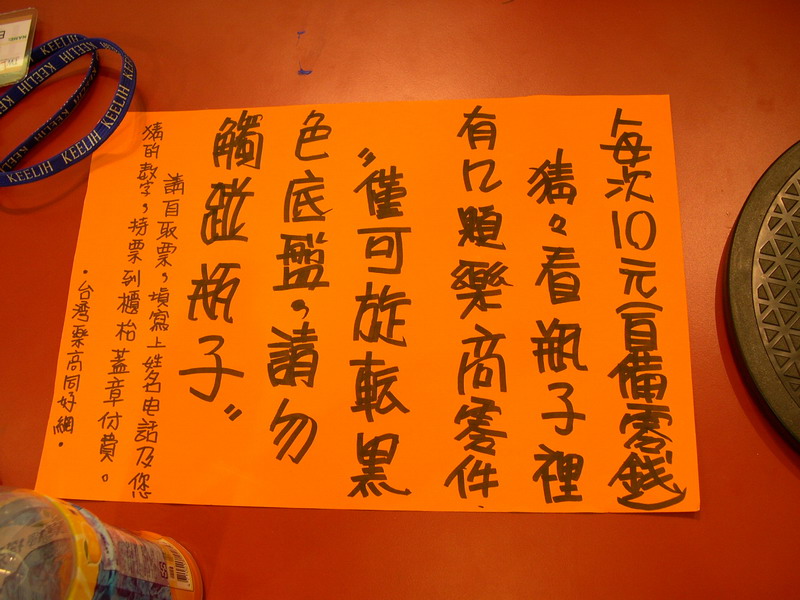 每次10元(自備零錢)
猜々看瓶子裡
有几顆樂高零件
"僅可旋転黑
色底盤，請勿
觸碰瓶子"
請自取票，填寫上姓名电話及您
猜的數字，持票到櫃枱蓋章付費。
·台湾樂高同好網·
KEELIH KEELIH KEELIH KEELIH KEELIH